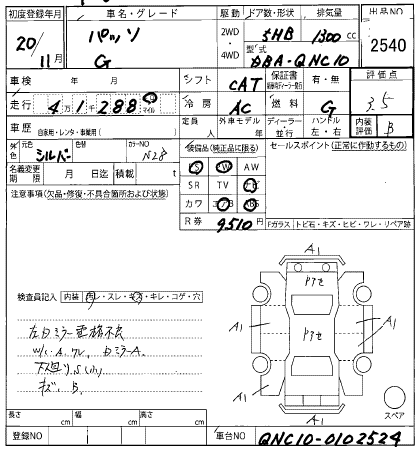 初度登録年月 車名・グレード 駆動 ドア数・形状 排気量 出品NO
20/11月 パッソ G 2WD 4WD 5HB 1300 cc 2540
型式 DBA-QNC10
車検 年 月 シフト CAT 保証書 有・無 評価点
走行 4万1千288 マイル 冷房 AC 燃料 G 3.5
車歴 自家用・レンタ・事業用( ) 定員 人 外車モデル 年 ディーラー・並行 ハンドル 左・右 内装評価 B
外色 元色 シルバー 色替 カラーNO N28 装備品(純正品に限る) セールスポイント(正常に作動するもの)
名義変更期限 月 日迄 積載 t
SR TV ナビ AW
カワ エアB ABS
R券 9510円
注意事項(欠品・修復・不具合箇所および状態)
Fガラス トビ石・キズ・ヒビ・ワレ・リペア跡
A1
A1
A1
A1
A1
A1
検査員記入 内装 スレ・キズ・キレ・コゲ・穴
左ミラー電格不良
キズ、B
スペア
長さ cm 幅 cm 高さ cm
登録NO 車台NO QNC10-0102524